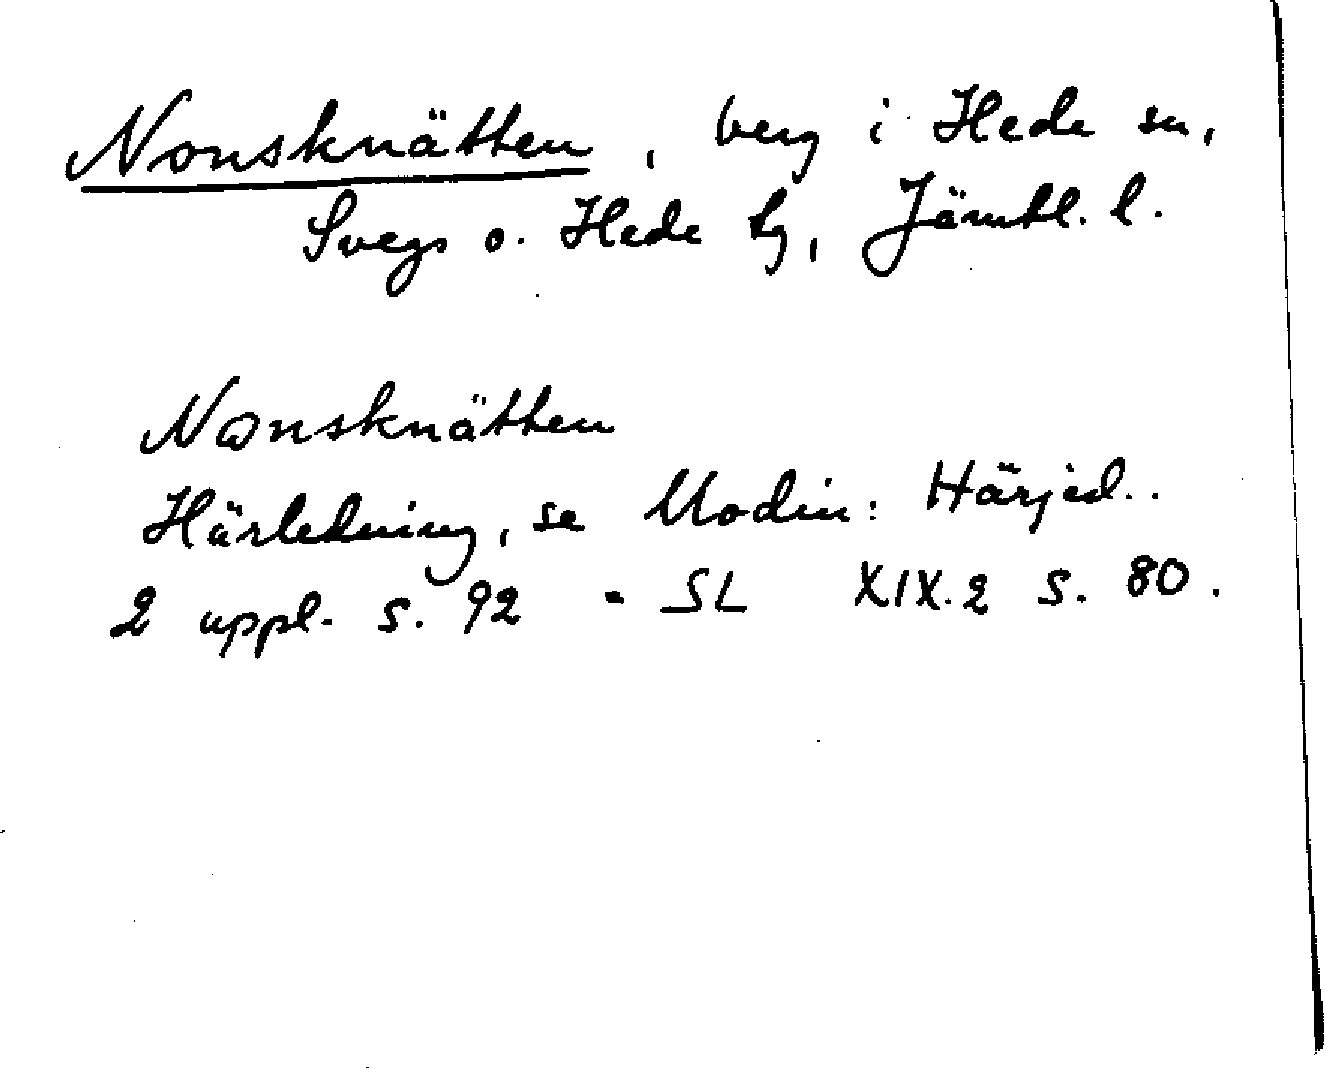 Nonsknätten, berg i Hede sn,
Svegs o. Hede tg, Jämtl. l.
Nonsknätten
Härledning, se Modin: Härjed..
2 uppl. s. 92 = SL XIX.2 S. 80.